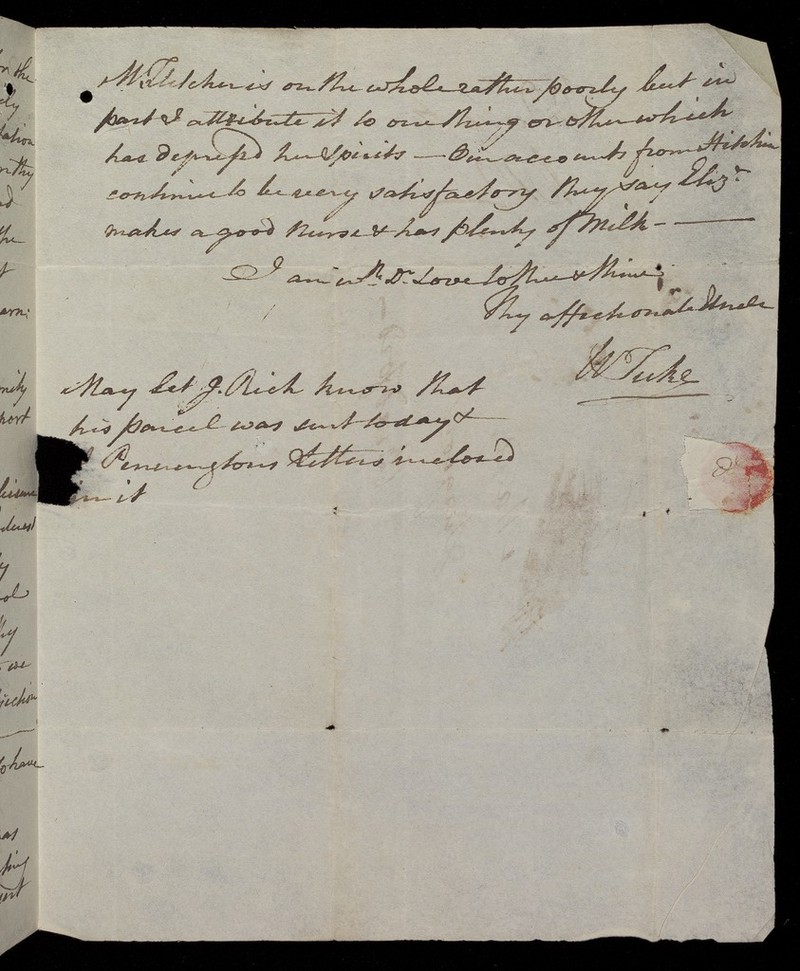 M Fletcher is on the whole rather poorly but in
part I attribute it to one thing or other which
has depress'd her Spirits — Our accounts from Hitchin
continue to be very satisfactory they say Eliz.
makes a good Nurse & has plenty of Milk —
I am wth. Dr. Love to thee & thine
Thy affectionate Uncle
W Tuke
May let J. Rich know that
his parcel was sent today &
Penningtons Letters inclosed
in it
on the
ely
tation
the
mity
port
leisure
ly
we
to have
as